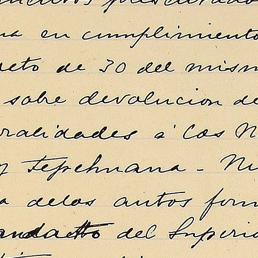 na en cumplimiento
eto de 30 del mism
sobre devolucion de
ralidades á Las N
y Tepehuana - Nu
a delos autos form
andatto del Superio